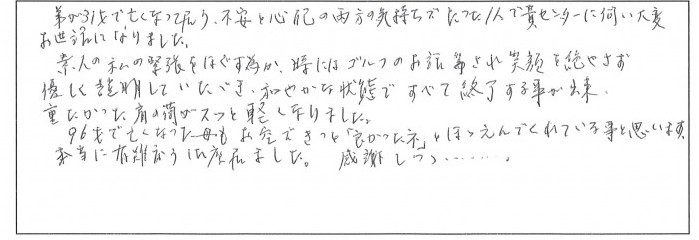 弟が31歳で亡くなって居り、不安と心配の両方の気持ちでたった1人で貴センターに伺い大変
お世話になりました。
素人の私の緊張をほぐす為か、時にはゴルフのお話等され笑顔を絶やさず
優しく説明していただき、和やかな状態ですべて終了する事が出来、
重たかった肩の荷がスーッと軽くなりました。
96才で亡くなった母もお空できっと「良かったネ」とほほえんでくれている事と思います
本当に有難う御座居ました。 感謝しつつ……。